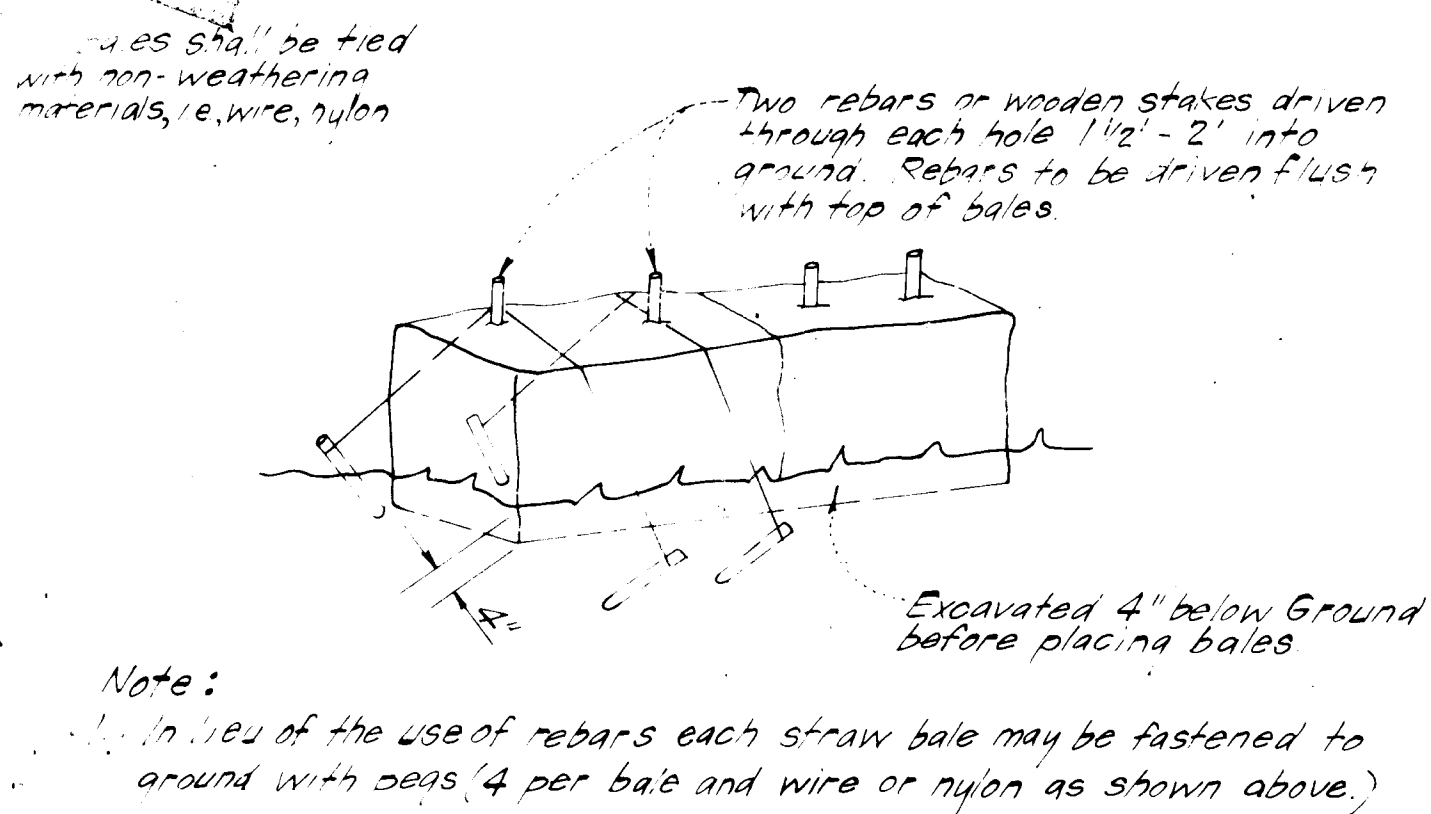 bales shall be tied
with non-weathering
materials, i.e., wire, nylon
Two rebars or wooden stakes driven
through each hole 1 1/2' - 2' into
ground. Rebars to be driven flush
with top of bales.
4"
Excavated 4" below Ground
before placing bales
Note:
1. In lieu of the use of rebars each straw bale may be fastened to
ground with pegs (4 per bale and wire or nylon as shown above.)